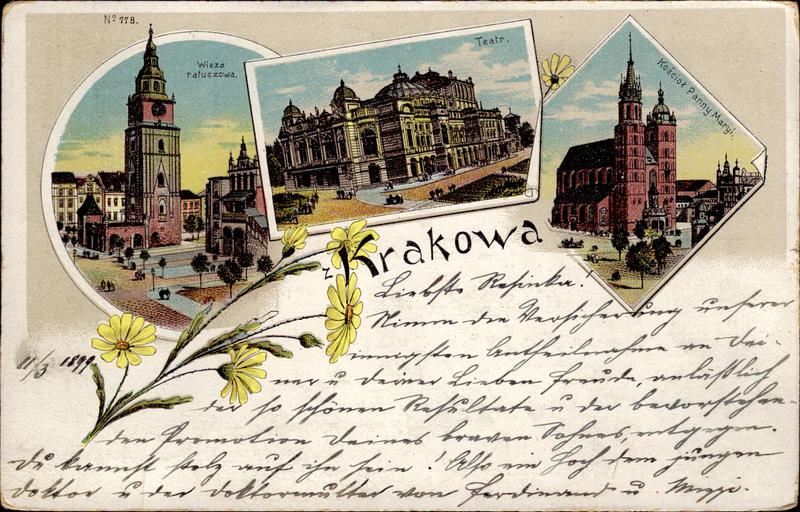 Nº 778.
Wieża
ratuszowa.
Teatr.
Kościół Panny Maryi.
z Krakowa
11/3 1899
Liebste Resinka!
Nimm die Versicherung unserer
innigsten Antheilnahme an Dei-
ner u deiner Lieben Freude, anläßlich
der so schönen Resultate u der bevorstehen-
den Promotion Deines braven Sohnes, entgegen.
Du kannst stolz auf ihn sein! Also ein Hoch dem jungen
Doktor u der Doktormutter von Ferdinand u Mizzi.